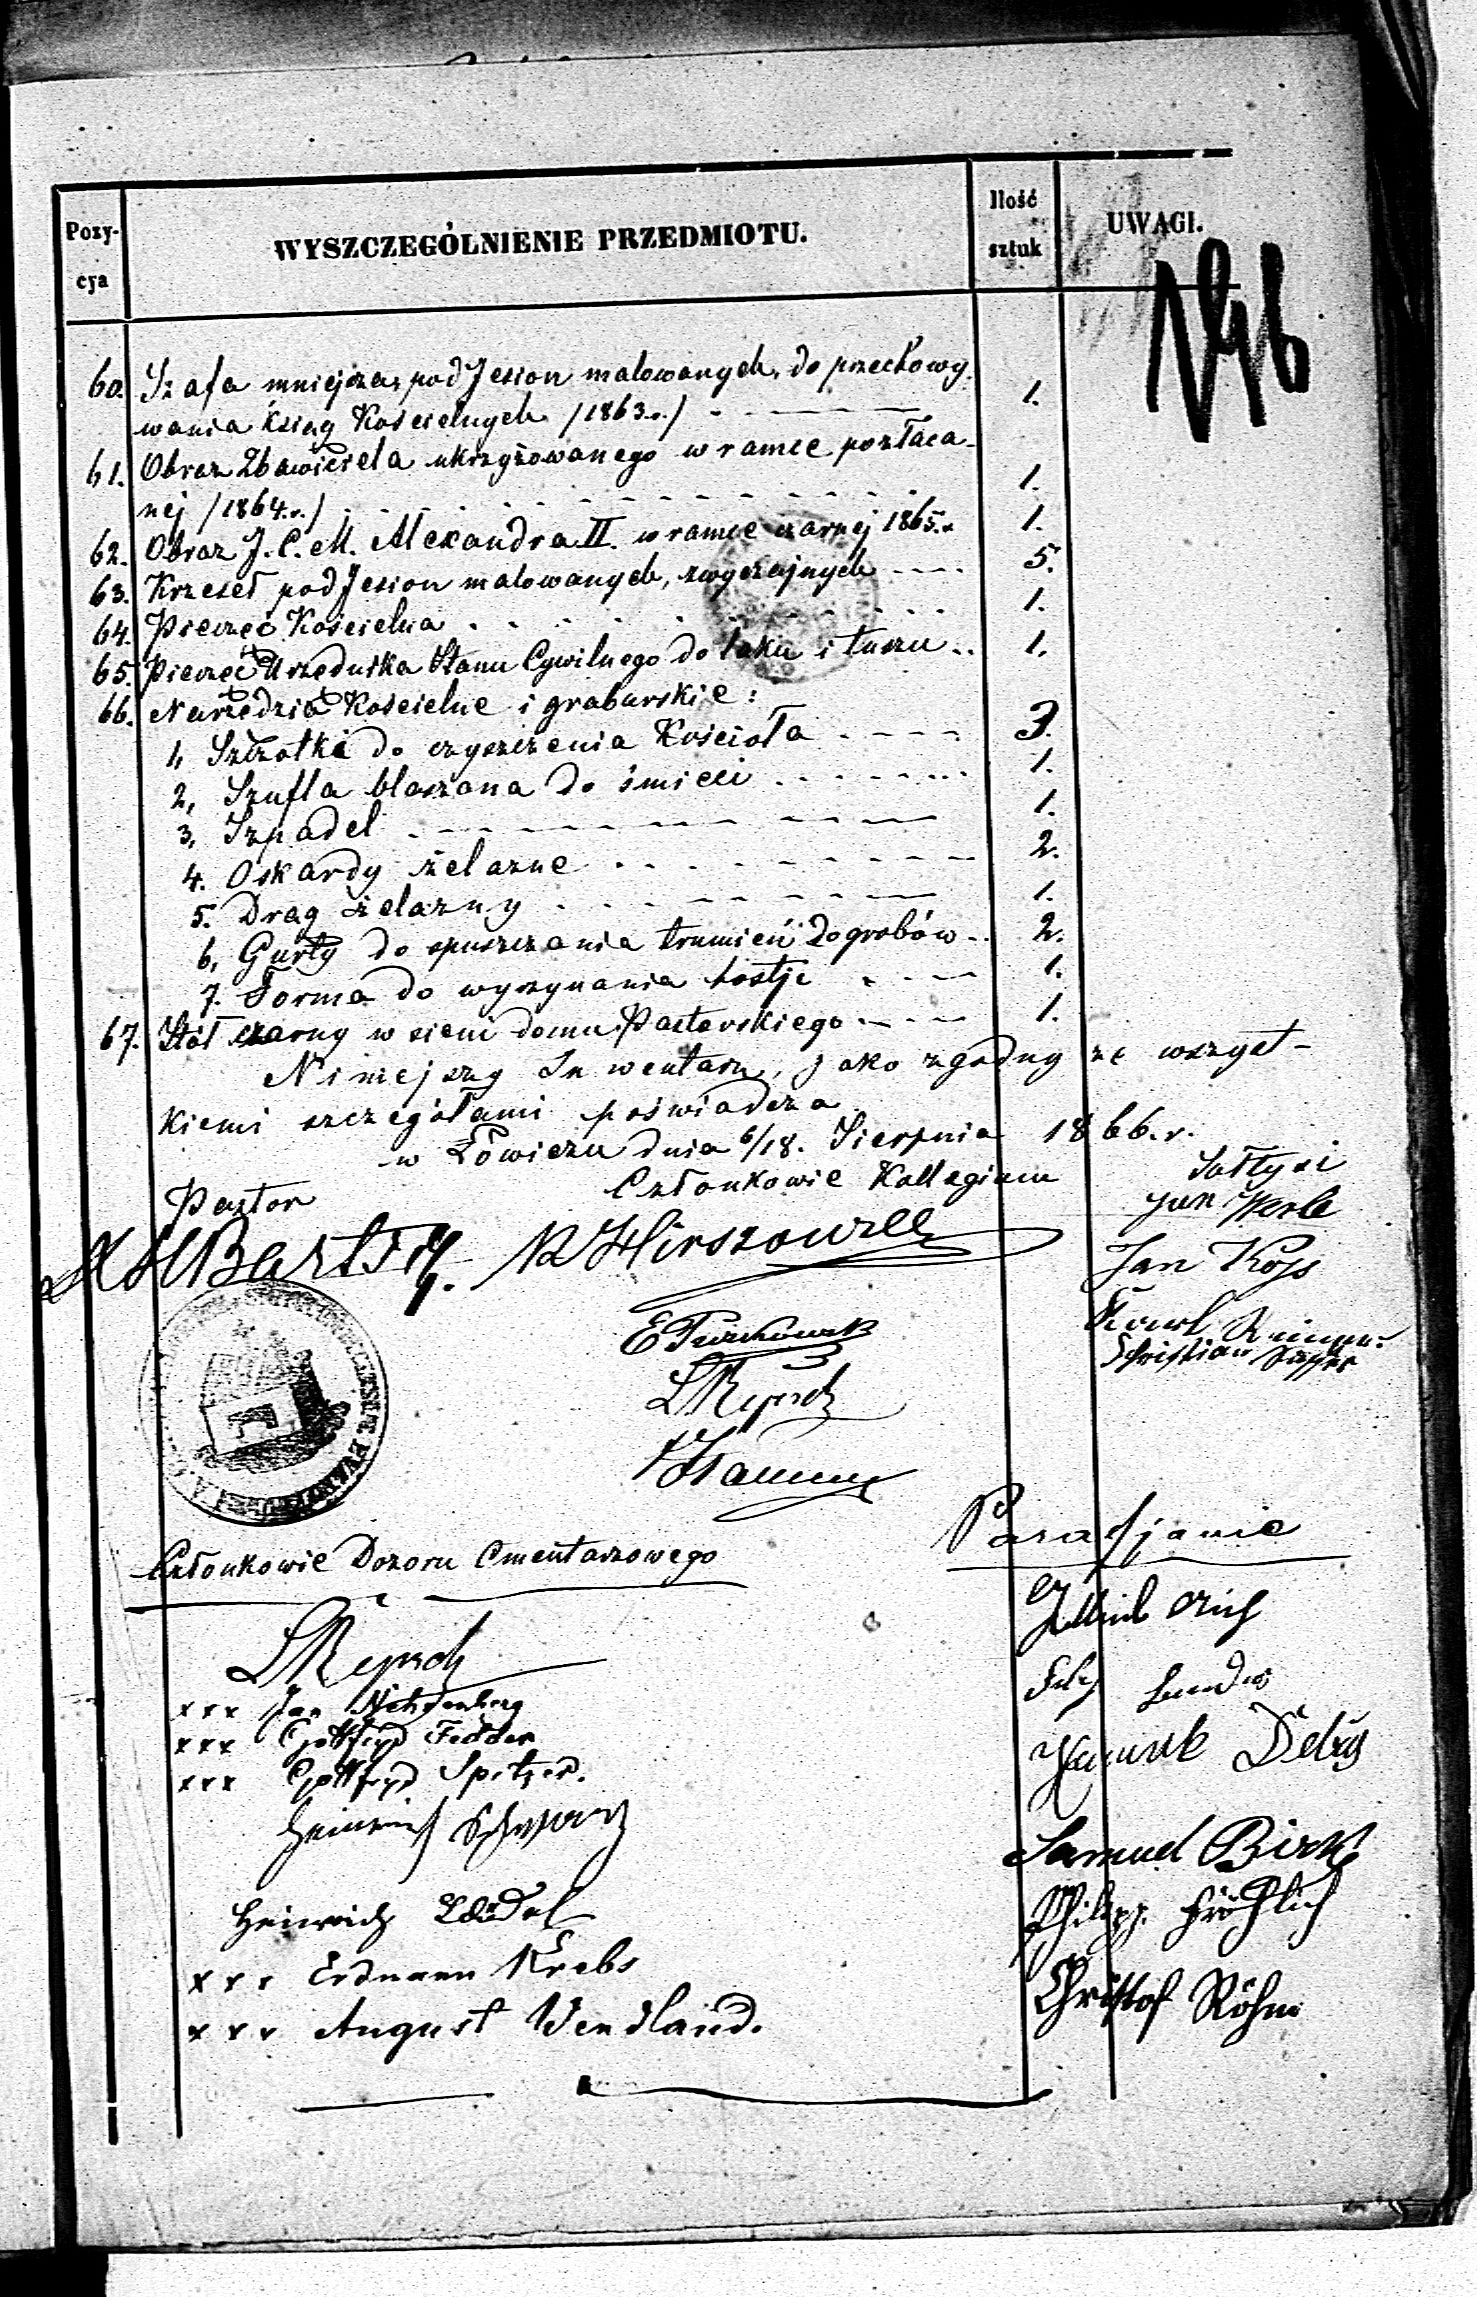 Pozy-
cya
WYSZCZEGÓLNIENIE PRZEDMIOTU.
Ilość
sztuk
UWAGI.
60. Szafa mniejsza, pod Jesion malowanych, do przechowy-
wania ksiąg Kościelnych /1863.r./ 1.
61. Obraz Zbawiciela ukrzyżowanego w ramce pozłaca-
nej /1864.r./ 1.
62. Obraz J. C. M. Alexandra II. w ramce czarnej 1865.r. 1.
63. Krzeseł pod Jesion malowanych, zwyczajnych 5.
64. Pieczęć Kościelna 1.
65. Pieczęć Urzędnika Stanu Cywilnego do laku i tuszu 1.
66. Narzędzia Kościelne i grabarskie:
1, Szczotki do czyszczenia Kościoła 3.
2, Szufla blaszana do śmieci 1.
3, Szpadel 1.
4. Oskardy żelazne 2.
5. Drąg żelazny 1.
6, Gurty do spuszczania trumień do grobów 2.
7. Forma do wyrzynania hostje 1.
67. Stół czarny w sieni domu Pastorskiego 1.
Niniejszy Inwentarz, jako zgodny ze wszyst-
kiemi szczegółami poświadcza
w Łowiczu dnia 6/18. Sierpnia 1866.r.
Pastor
Członkowie Kollegium
Sołtysi
Jan Werle
Jan Kojs
Karl
Christian
LReprch
Członkowie Dozoru Cmentarzowego
Parafjanie
LReprch
xxx Jan
xxx Gottfryd Fedder
xxx Gottfryd Spitzer.
Heinrich Schwarz
Samuel Birk
Heinrich
Philipp Fröhlich
xxx Erdmann Krebs
Christof Röhm
xxx August Wendland.